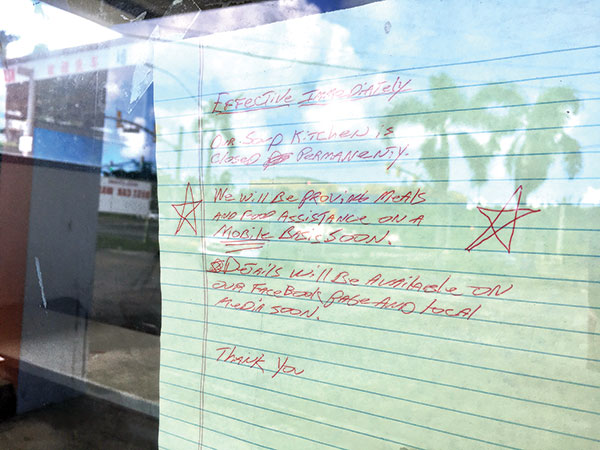 Effective Immediately
Our Soup Kitchen is
Closed Permanenty.
We will Be Proving Meals
And Food Assistance on a
Mobile Basis Soon.
Details will Be Available on
our FaceBook page and Local
Media Soon.
Thank You